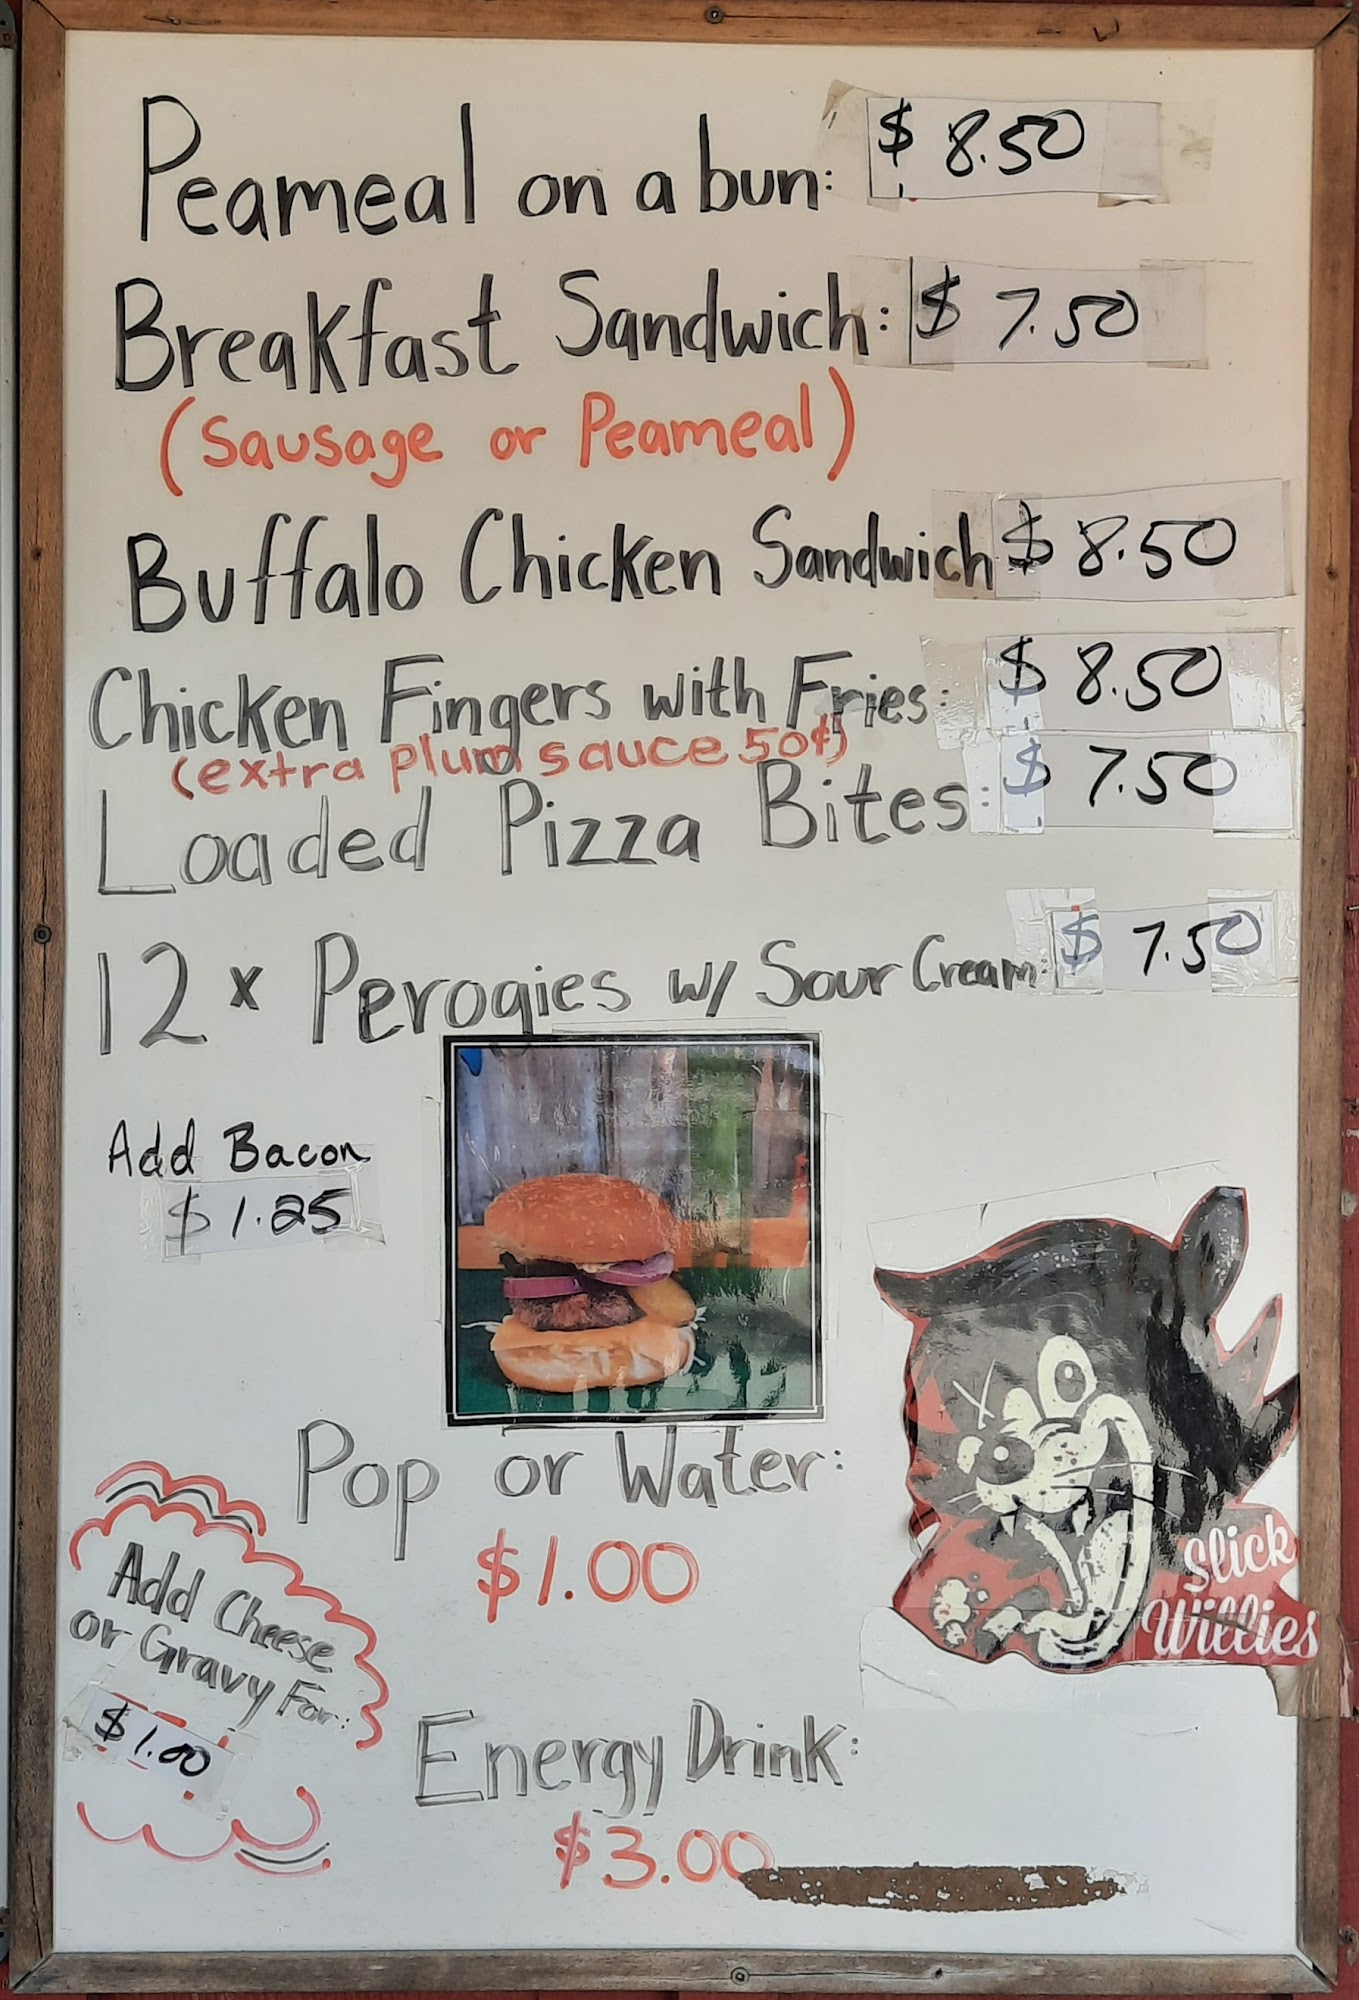 Peameal on a bun: $ 8.50
Breakfast Sandwich: $ 7.50
(Sausage or Peameal)
Buffalo Chicken Sandwich $ 8.50
Chicken Fingers with Fries: $ 8.50
(extra plum sauce 50¢)
Loaded Pizza Bites: $ 7.50
12 x Perogies w/ Sour Cream: $ 7.50
Add Bacon
$ 1.25
Pop or Water:
$1.00
Add Cheese
or Gravy For:
$1.00
Slick
Willies
Energy Drink:
$3.00